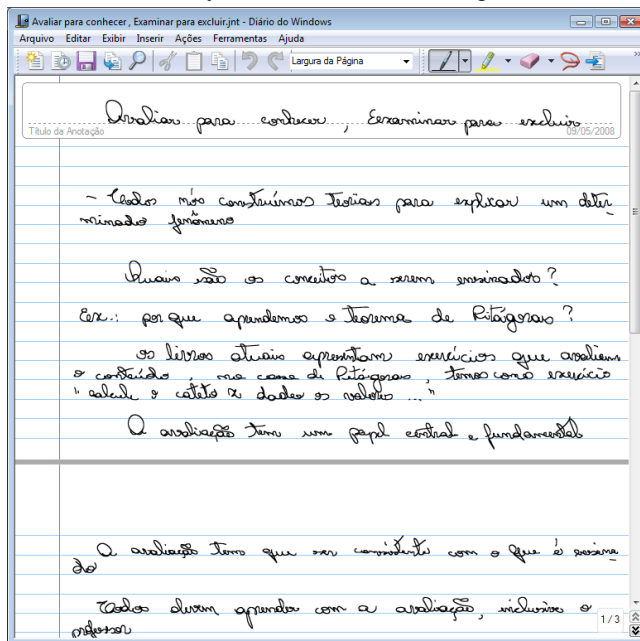 Avaliar para conhecer, Examinar para excluir.jnt - Diário do Windows
Arquivo Editar Exibir Inserir Ações Ferramentas Ajuda
Largura da Página
Avaliar para conhecer, Examinar para excluir
Título da Anotação 09/05/2008
- Todos nós construímos Teorias para explicar um deter
minado fenômeno
Quais são os conceitos a serem ensinados?
Ex.: por que aprendemos o Teorema de Pitágoras?
os livros atuais apresentam exercícios que avaliam
o conteúdo, no caso de Pitágoras, temos como exercício
"calcule o cateto x dados os valores ..."
A avaliação tem um papel central e fundamental
A avaliação tem que ser consistente com o que é ensina
do
Todos devem aprender com a avaliação, inclusive o
professor
1/3